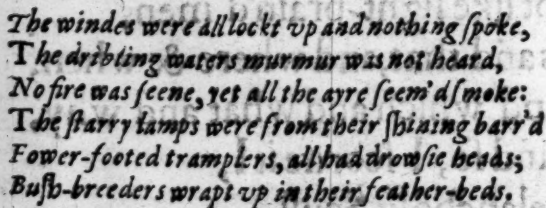 The windes were all lockt vp and nothing ſpoke,
The dribling waters murmur was not heard,
No fire was ſeene, yet all the ayre ſeem'd ſmoke:
The ſtarry lamps were from their ſhining barr'd
Fower-footed tramplers, all had drowſie heads;
Buſh-breeders wrapt vp in their feather-beds.